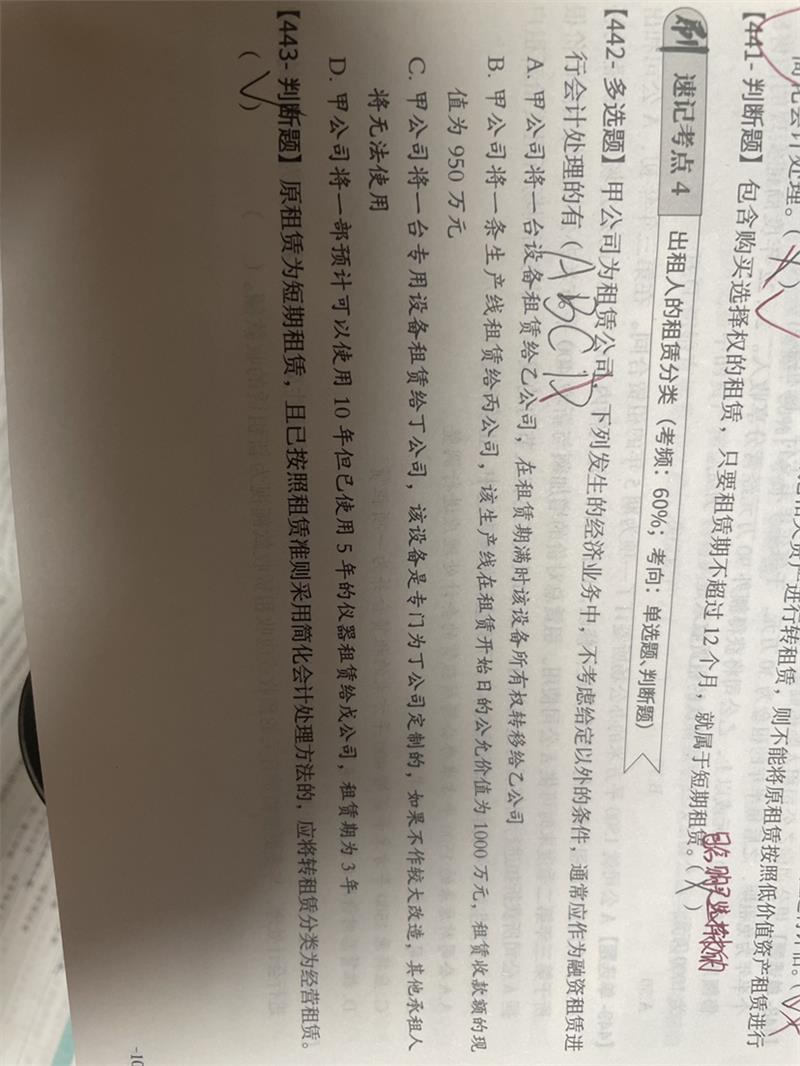 简化会计处理。(
相关资产进行转租赁，则不能将原租赁按照低价值资产租赁进行
【441- 判断题】包含购买选择权的租赁，只要租赁期不超过 12 个月，就属于短期租赁。(×)
购买选择权的
刷 速记考点 4 出租人的租赁分类（考频：60%；考向：单选题、判断题）
【442- 多选题】甲公司为租赁公司，下列发生的经济业务中，不考虑给定以外的条件，通常应作为融资租赁进
行会计处理的有（ABCD
A. 甲公司将一台设备租赁给乙公司，在租赁期满时该设备所有权转移给乙公司
B. 甲公司将一条生产线租赁给丙公司，该生产线在租赁开始日的公允价值为 1000 万元，租赁收款额的现
值为 950 万元
C. 甲公司将一台专用设备租赁给丁公司，该设备是专门为丁公司定制的，如果不作较大改造，其他承租人
将无法使用
D. 甲公司将一部预计可以使用 10 年但已使用 5 年的仪器租赁给戊公司，租赁期为 3 年
【443- 判断题】原租赁为短期租赁，且已按照租赁准则采用简化会计处理方法的，应将转租赁分类为经营租赁。
(√)
-10